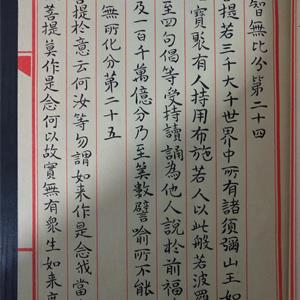 智無比分第二十四
提若三千大千世界中所有諸須彌山王如
寶聚有人持用布施若人以此般若波羅
至四句偈等受持讀誦為他人說於前福
及一百千萬億分乃至算數譬喻所不能
無所化分第二十五
菩提於意云何汝等勿謂如来作是念我當
菩提莫作是念何以故實無有眾生如来